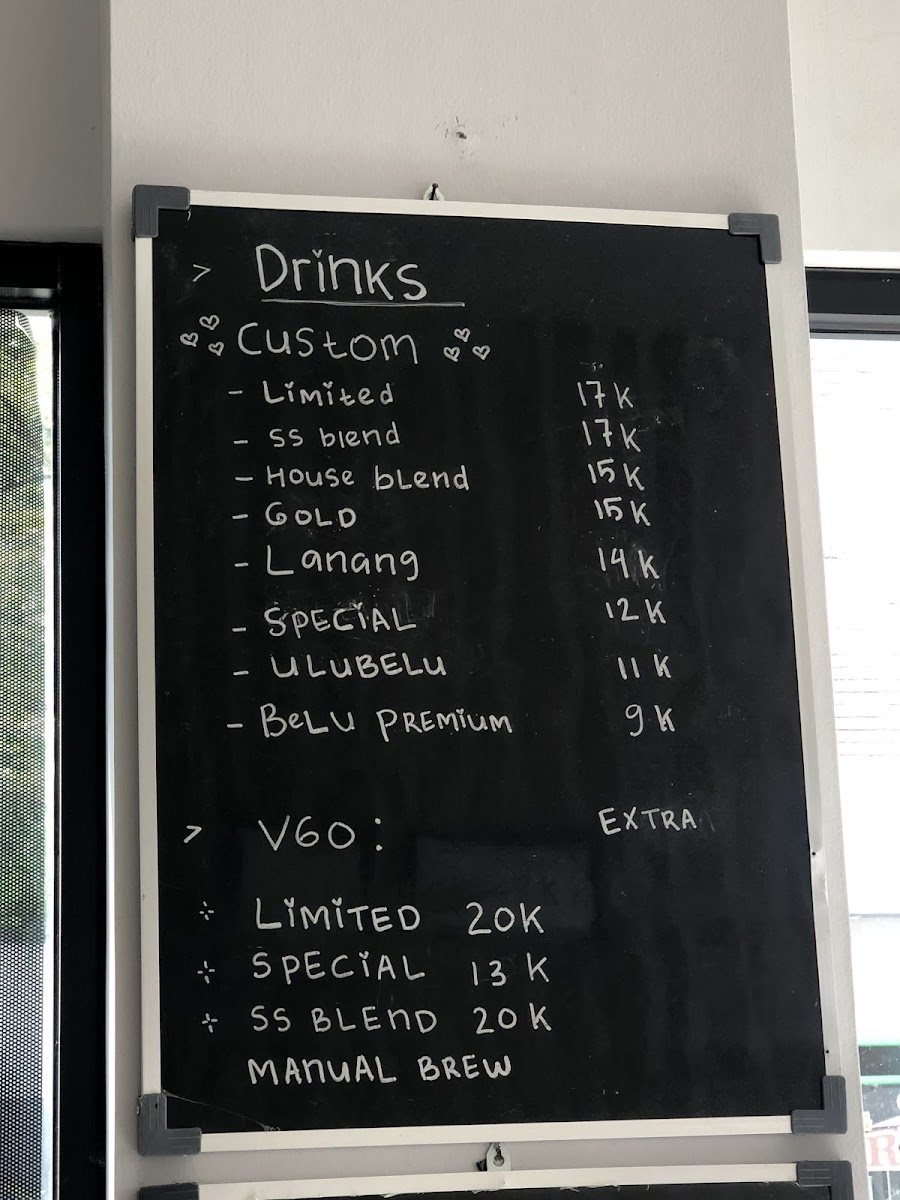 > Drinks
Custom
- Limited 17K
- SS blend 17K
- House blend 15K
- GOLD 15K
- Lanang 14K
- SPECIAL 12K
- ULUBELU 11K
- BeLU PREMIUM 9K
> V60: EXTRA
LIMITED 20K
SPECIAL 13K
SS BLEND 20K
MANUAL BREW
R